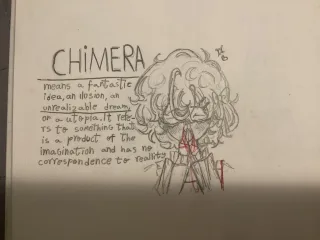 CHIMERA
means a fantastic
idea, an ilusion, an
unrealizable dream,
or a utopia. It refe-
rs to something that
is a product of the
imagination and has no
correspondence to reality